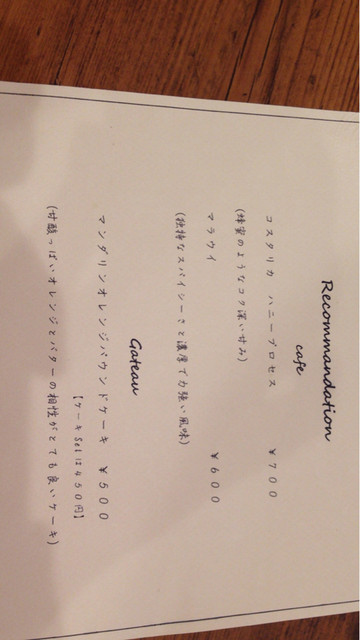 Recommandation
cafe
コスタリカ ハニープロセス ￥700
(蜂蜜のようなコク深い甘み)
マラウイ ￥600
(独特なスパイシーさと濃厚で力強い風味)
Gateau
マンダリンオレンジパウンドケーキ ￥500
【ケーキSetは450円】
(甘酸っぱいオレンジとバターの相性がとても良いケーキ)